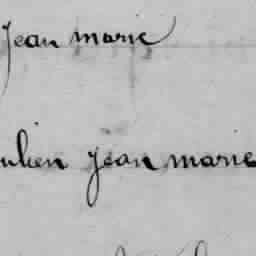 jean marie
ulien jean marie